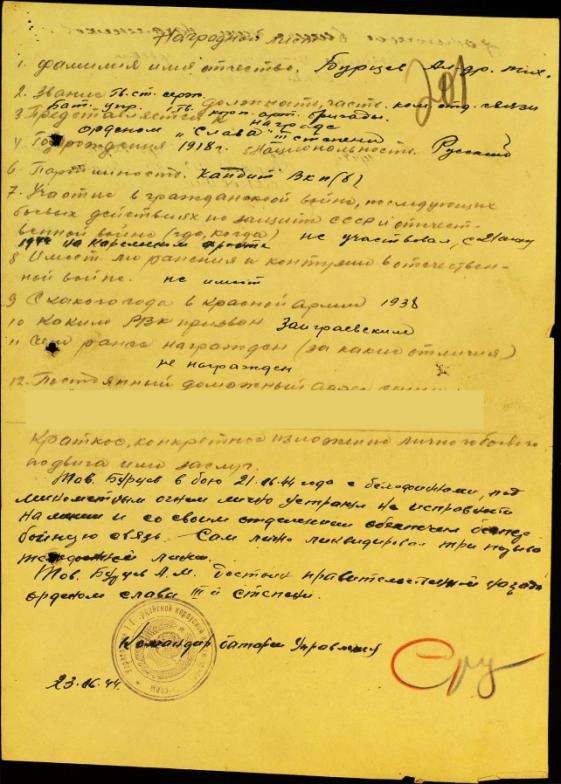 Наградной лист
1. Фамилия имя отчество. Бурцев Андр. Мих.
2. Звание Гв. ст. серж. Должность, часть. ком. отд. связи
Бат. упр. арт. бригады.
3. Представляется к награде
орденом "Слава" III степени
4 Год рождения 1918 г. Национальность. Русский
6. Партийность. Кандит ВКП(б)
7. Участие в гражданской войне, последующих
боевых действиях по защите СССР и отечест-
венной войне (где, когда) не участвовал, с 21 июня
1944 на Карельском фронте
8 Имеет ли ранения и контузии в отечествен-
ной войне. не имеет
9 С какого года в Красной Армии 1938
10 Каким РВК призван Заиграевским
11 Чем ранее награжден (за какие отличия)
не награжден
12. Постоянный домашный адрес
Краткое, конкретное изложение личного боевого
подвига или заслуг.
Тов. Бурцев в бою 21.06.44 года с белофинами, под
минометным огнем лично устранял не исправности
на линии и со своим отделением обеспечил беспере-
бойную связь. Сам лично ликвидировал три порыва
линии.
Тов. Бурцев А.М. Достоин правительственной награды
орденом слава III й степени.
Командир батареи Управления
23.06.44.